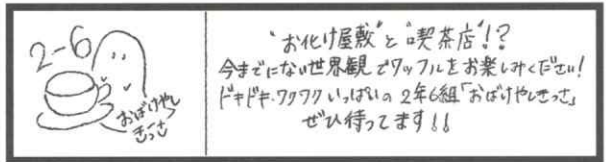 2-6
おばけやしきっさ
"お化け屋敷"と"喫茶店"!?
今までにない世界観でワッフルをお楽しみください!
ドキドキ・ワクワクいっぱいの2年6組「おばけやしきっさ」
ぜひ待ってます!!